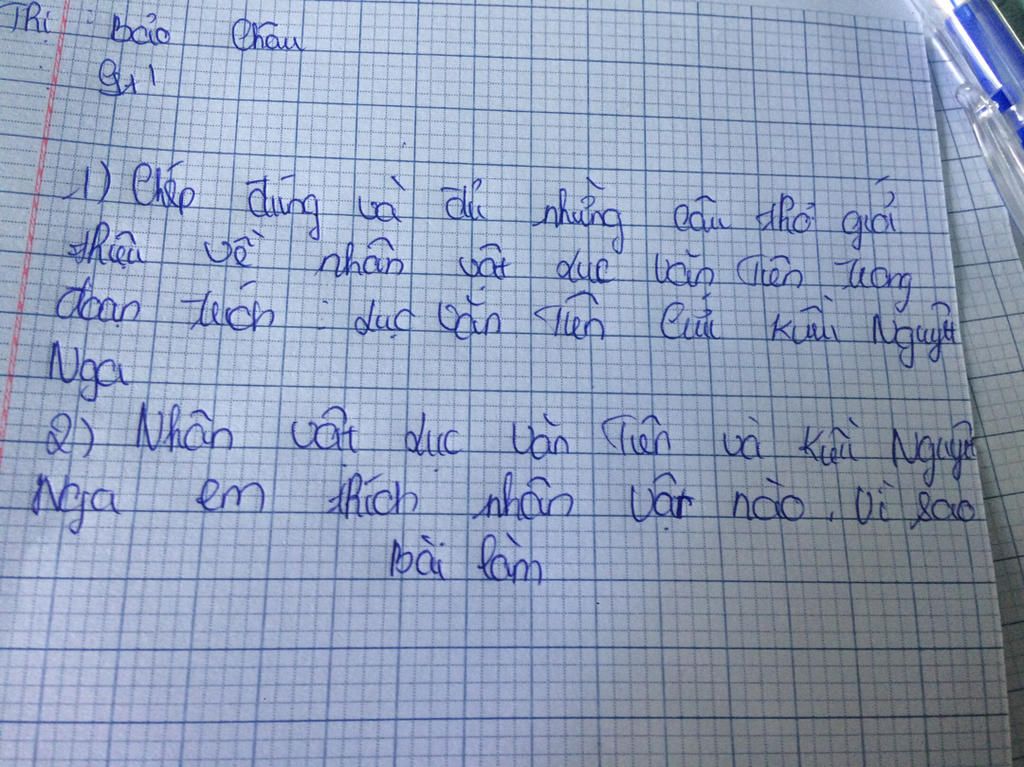 Thị Bảo Châu
9/1
1) Chép đúng và đủ những câu thơ giới
thiệu về nhân vật Lục Vân Tiên trong
đoạn trích : Lục Vân Tiên Cứu Kiều Nguyệt
Nga
2) Nhân vật Lục Vân Tiên và Kiều Nguyệt
Nga em thích nhân vật nào, vì sao
Bài làm